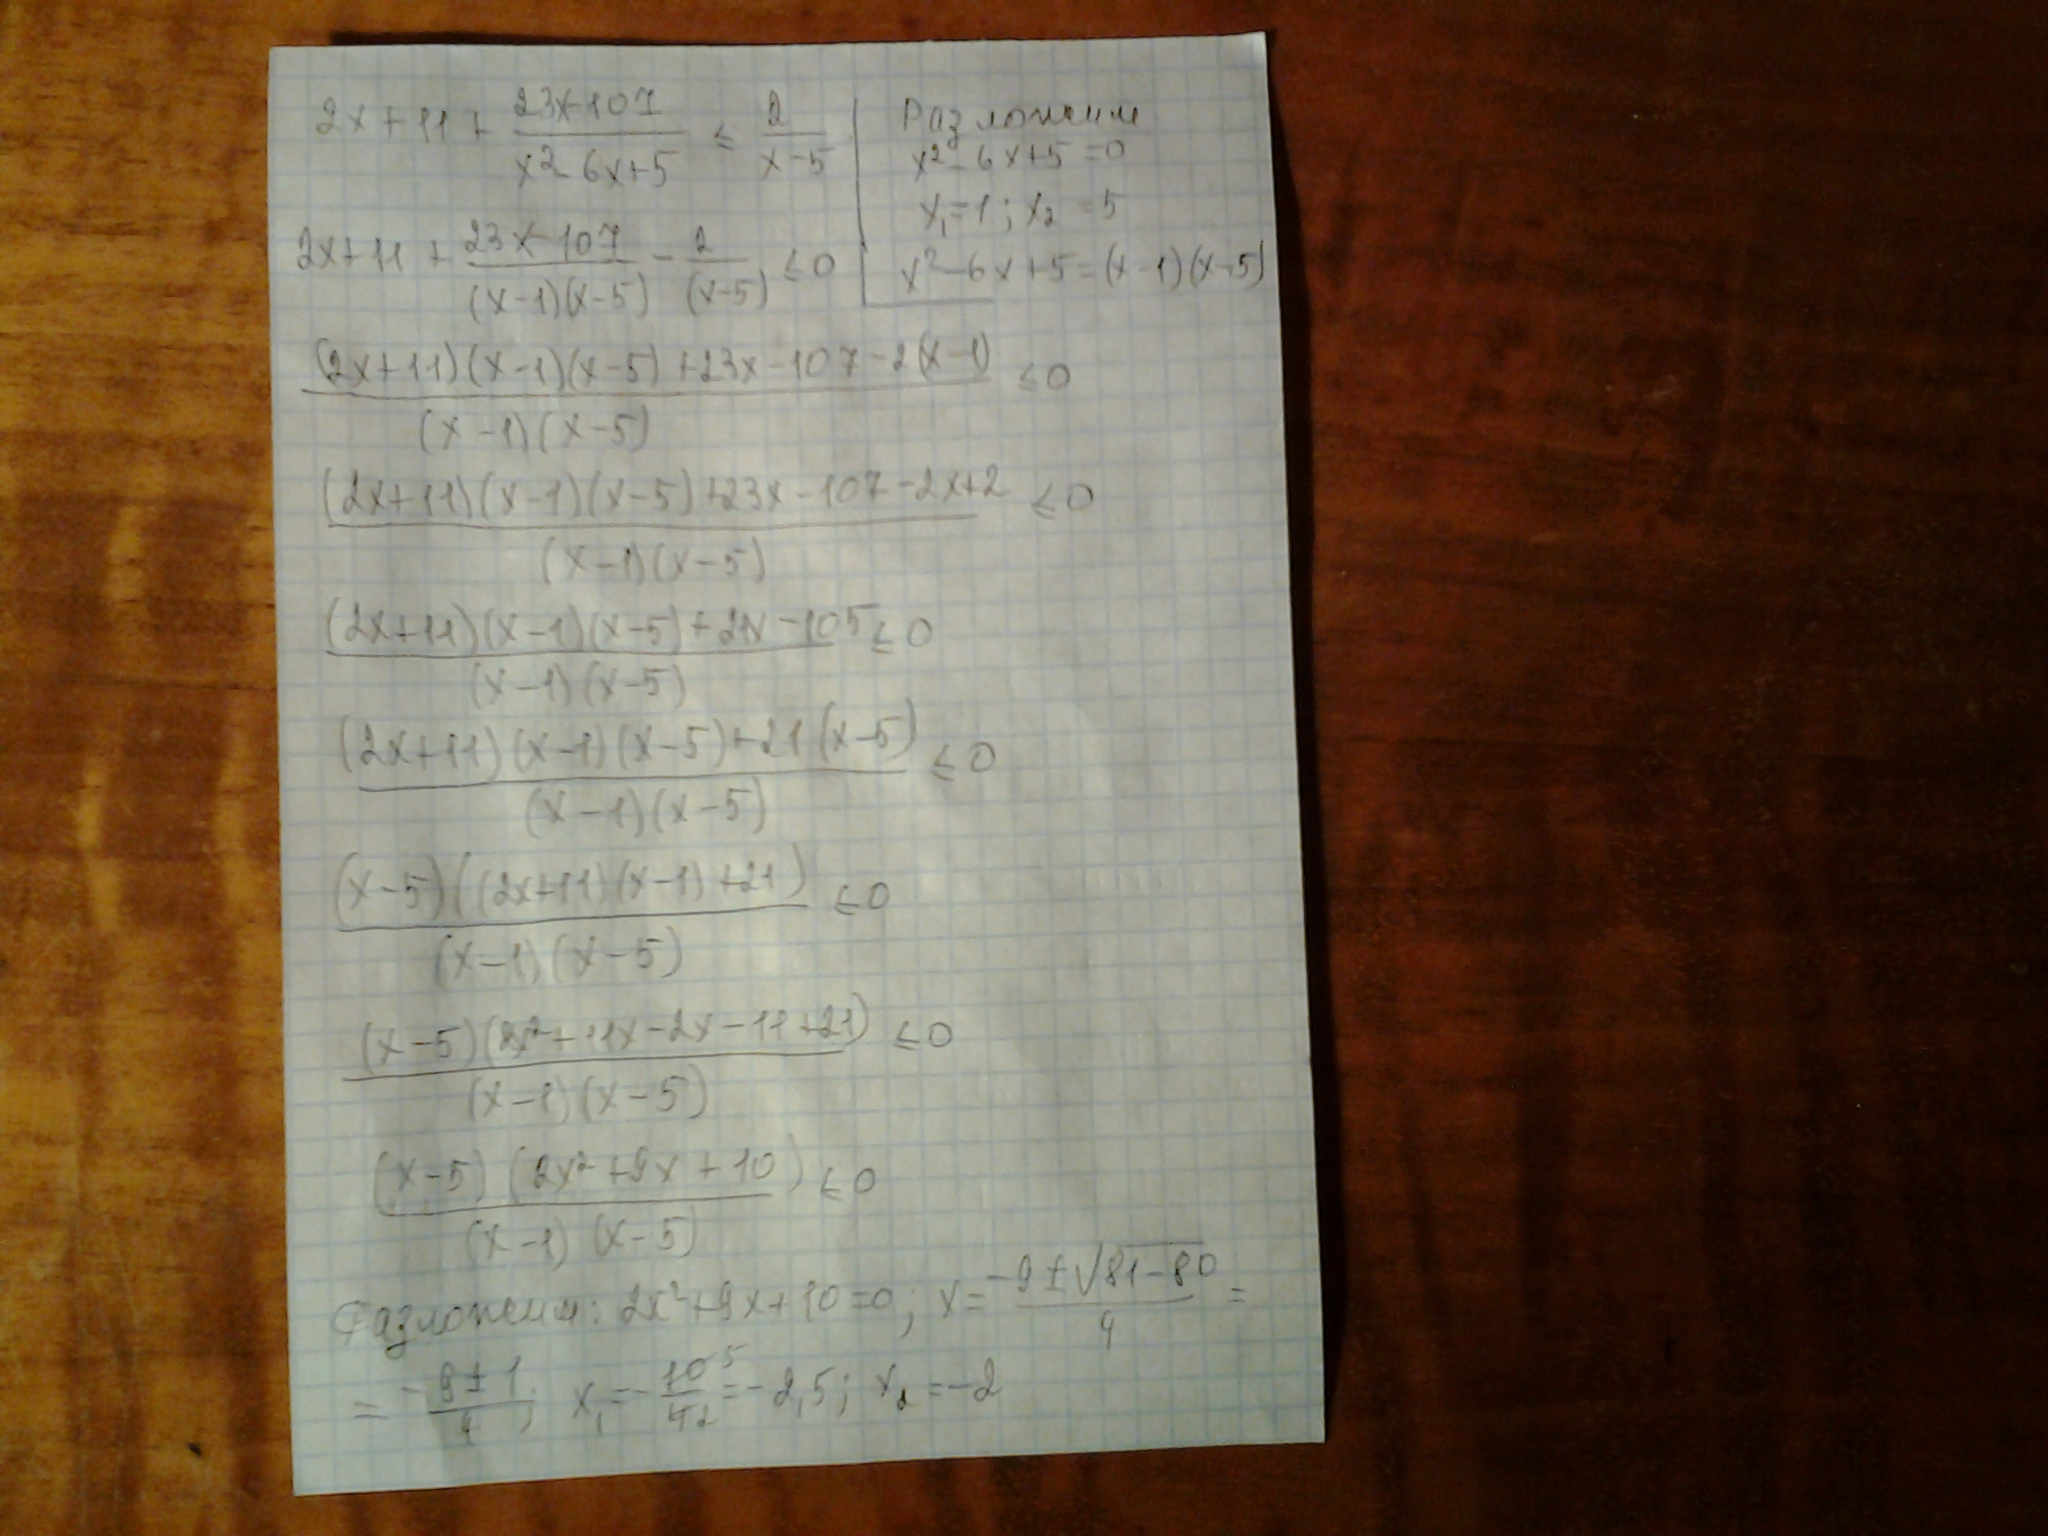 2x+11+\frac{23x-107}{x^2-6x+5} ≤ \frac{2}{x-5}
Разложим
x^2-6x+5=0
x_1=1; x_2=5
x^2-6x+5=(x-1)(x-5)
2x+11+\frac{23x-107}{(x-1)(x-5)}-\frac{2}{(x-5)} ≤0
\frac{(2x+11)(x-1)(x-5)+23x-107-2(x-1)}{(x-1)(x-5)} ≤0
\frac{(2x+11)(x-1)(x-5)+23x-107-2x+2}{(x-1)(x-5)} ≤0
\frac{(2x+11)(x-1)(x-5)+21x-105}{(x-1)(x-5)} ≤0
\frac{(2x+11)(x-1)(x-5)+21(x-5)}{(x-1)(x-5)} ≤0
\frac{(x-5)((2x+11)(x-1)+21)}{(x-1)(x-5)} ≤0
\frac{(x-5)(2x^2+11x-2x-11+21)}{(x-1)(x-5)} ≤0
\frac{(x-5)(2x^2+9x+10)}{(x-1)(x-5)} ≤0
Разложим: 2x^2+9x+10=0; x=\frac{-9±\sqrt{81-80}}{4}=
=\frac{-9±1}{4}; x_1=-\frac{10 5}{4 2}=-2,5; x_2=-2